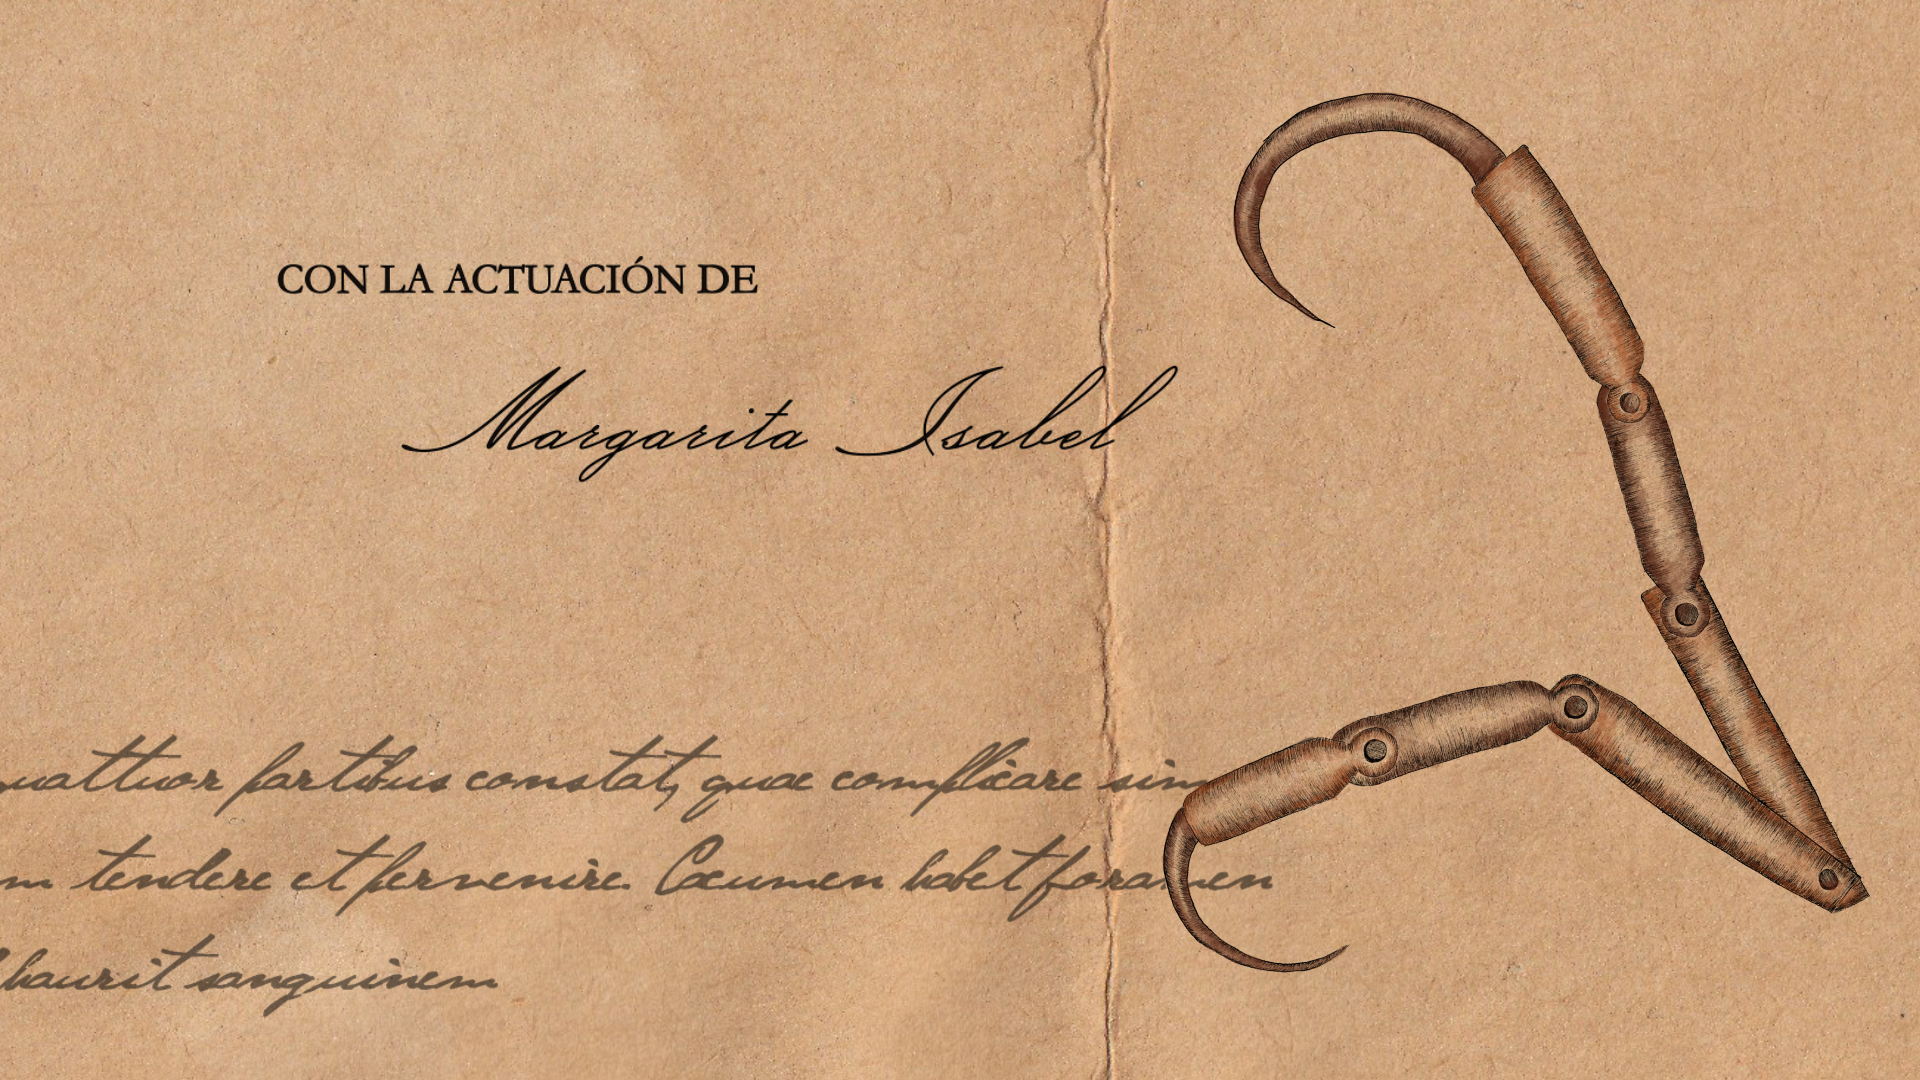 CON LA ACTUACIÓN DE
Margarita Isabel
partibus constat, quae complicare
tendere et pervenire. Cacumen habet foramen
haurit sanguinem